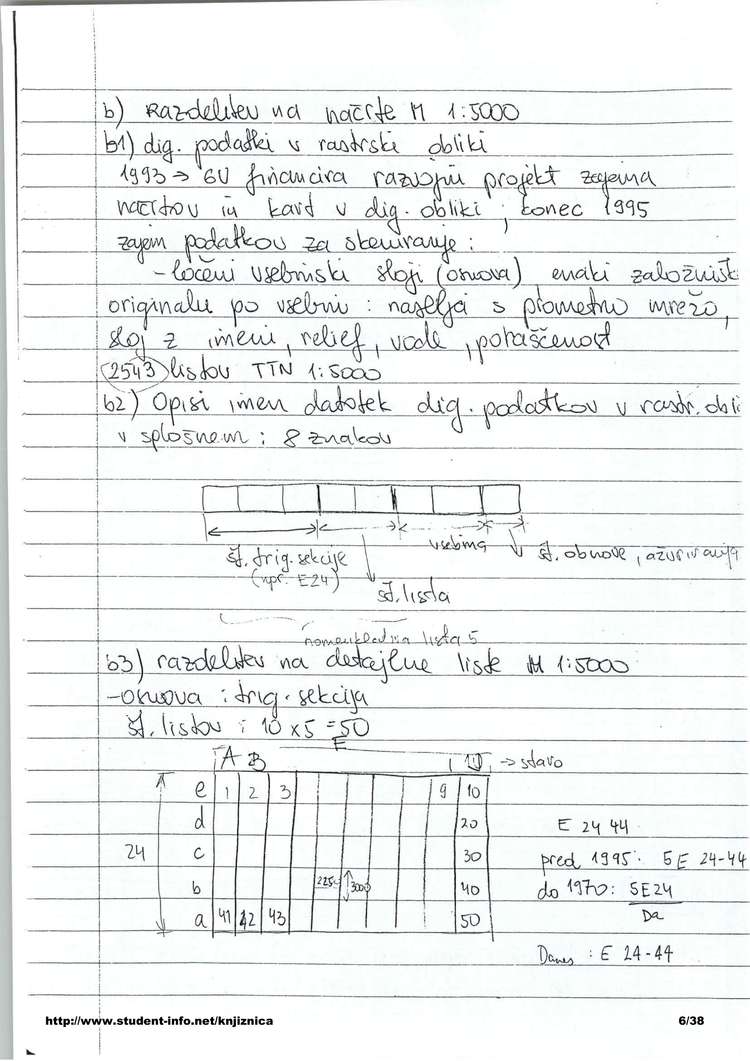 b) Razdelitev na načrte M 1:5000
b1) dig. podatki v rastrski obliki
1993 → GU financira razvojni projekt zajema
načrtov in kart v dig. obliki ; konec 1995
zajem podatkov za skeniranje :
- ločeni vsebinski sloji (osnova) enaki založnišk
originalu po vsebini : naselja s prometno mrežo,
sloj z imeni, relief, vode, poraščenost
2543 listov TTN 1:5000
b2) Opisi imen datotek dig. podatkov v rastr. obli
v splošnem : 8 znakov
št. trig. sekcije
(npr. E24)
št. lista
vsebina
št. obnove, ažuriranja
nomenklatura lista 5
b3) razdelitev na detajlne liste M 1:5000
- osnova : trig. sekcija
št. listov : 10 x 5 = 50
E
A B
→ staro
e 1 2 3 9 10
d 20
24 c 30
b 2250 3000 40
a 41 42 43 50
E 24 44
pred 1995: 5E 24-44
do 1970: 5E24
Da
Danes : E 24-44
http://www.student-info.net/knjiznica
6/38